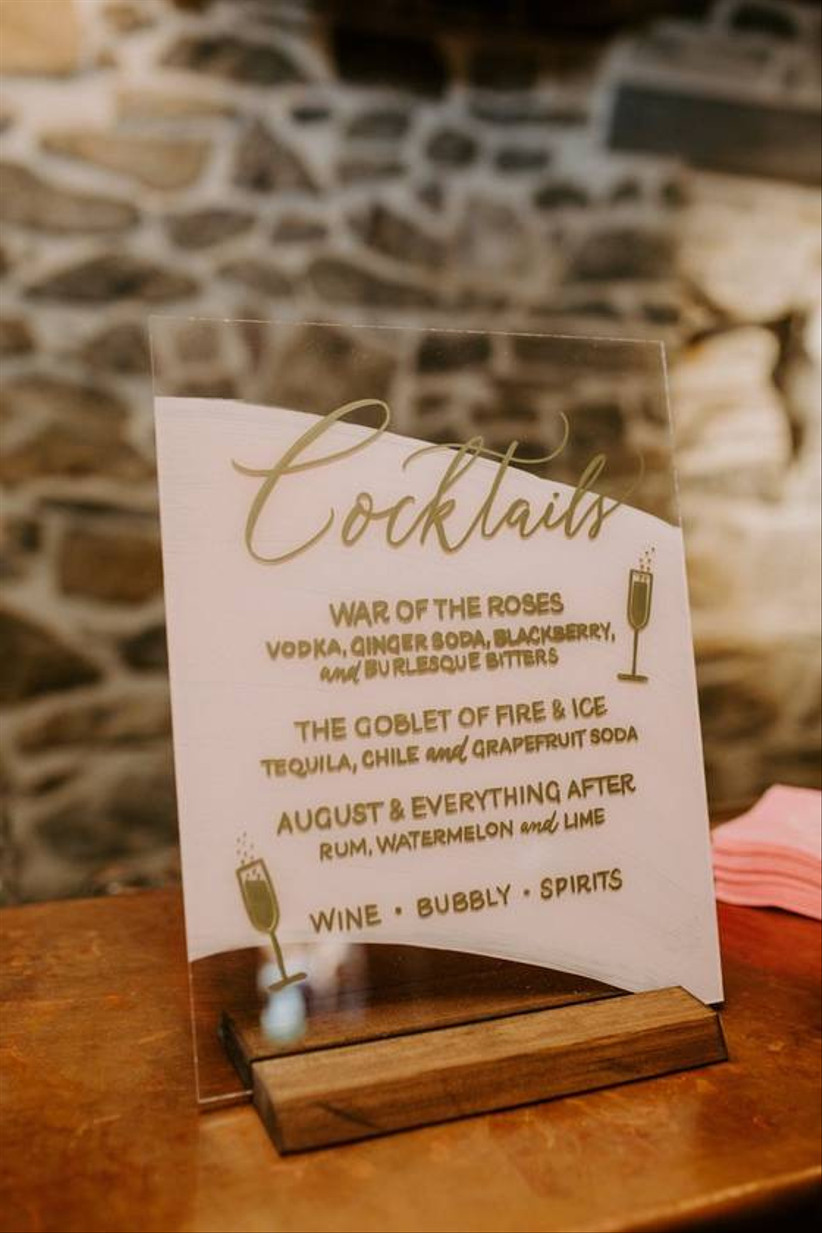 Cocktails
WAR OF THE ROSES
VODKA, GINGER SODA, BLACKBERRY,
and BURLESQUE BITTERS
THE GOBLET OF FIRE & ICE
TEQUILA, CHILE and GRAPEFRUIT SODA
AUGUST & EVERYTHING AFTER
RUM, WATERMELON and LIME
WINE • BUBBLY • SPIRITS